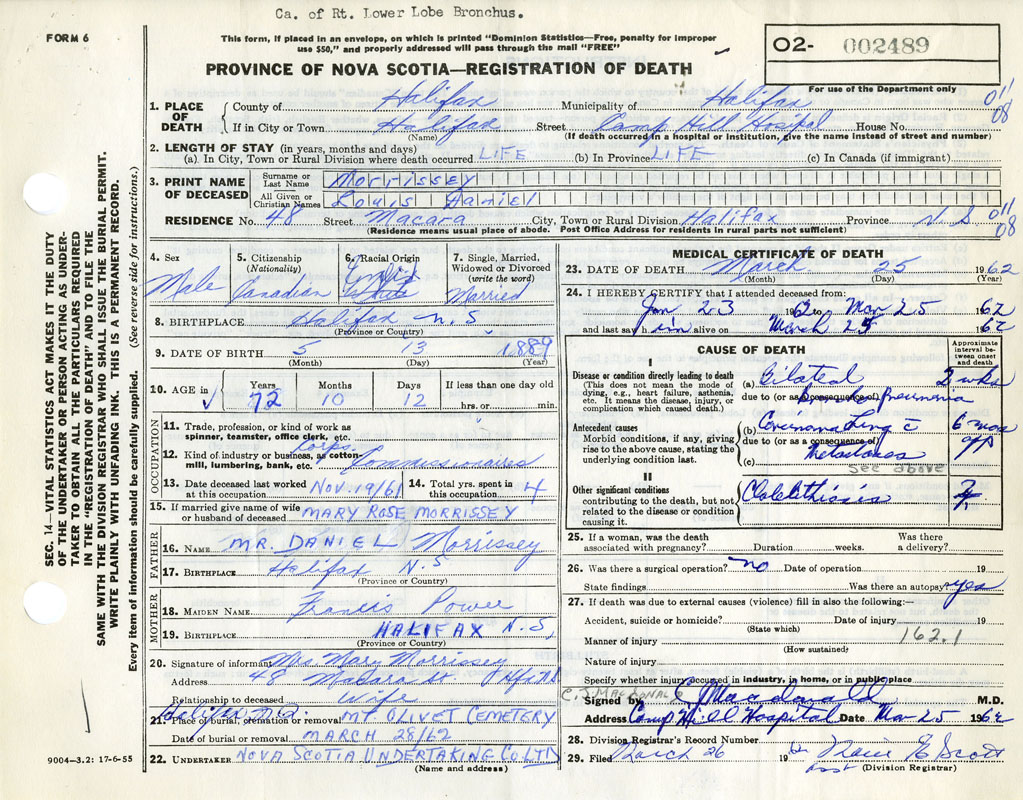 Ca. of Rt. Lower Lobe Bronchus.
FORM 6
This form, if placed in an envelope, on which is printed "Dominion Statistics—Free, penalty for improper
use $50," and properly addressed will pass through the mail "FREE"
O2- 002489
PROVINCE OF NOVA SCOTIA—REGISTRATION OF DEATH
For use of the Department only
SEC. 14—VITAL STATISTICS ACT MAKES IT THE DUTY
OF THE UNDERTAKER OR PERSON ACTING AS UNDER-
TAKER TO OBTAIN ALL THE PARTICULARS REQUIRED
IN THE "REGISTRATION OF DEATH" AND TO FILE THE
SAME WITH THE DIVISION REGISTRAR WHO SHALL ISSUE THE BURIAL PERMIT.
WRITE PLAINLY WITH UNFADING INK. THIS IS A PERMANENT RECORD.
Every item of information should be carefully supplied. (See reverse side for instructions.)
1. PLACE OF DEATH County of Halifax Municipality of Halifax 011
If in City or Town Halifax Street Camp Hill Hosipal House No. 08
(Name) (If death occurred in a hospital or institution, give the name instead of street and number)
2. LENGTH OF STAY (in years, months and days)
(a). In City, Town or Rural Division where death occurred LIFE (b) In Province LIFE (c) In Canada (if immigrant)
3. PRINT NAME OF DECEASED Surname or Last Name Morrissey
All Given or Christian Names Louis Daniel
RESIDENCE No. 48 Street Macara City, Town or Rural Division Halifax Province N.S 011
(Residence means usual place of abode. Post Office Address for residents in rural parts not sufficient) 08
4. Sex Male
5. Citizenship (Nationality) Canadian
6. Racial Origin
7. Single, Married, Widowed or Divorced (write the word) Married
8. BIRTHPLACE Halifax N.S
(Province or Country)
9. DATE OF BIRTH 5 13 1889
(Month) (Day) (Year)
10. AGE in Years 72 Months 10 Days 12 If less than one day old hrs. or min.
OCCUPATION
11. Trade, profession, or kind of work as
spinner, teamster, office clerk, etc.
12. Kind of industry or business, as cotton-
mill, lumbering, bank, etc. Corps Commissionaires
13. Date deceased last worked at this occupation Nov. 19/61 14. Total yrs. spent in this occupation 4
15. If married give name of wife or husband of deceased MARY ROSE MORRISSEY
FATHER
16. NAME MR. DANIEL Morrissey
17. BIRTHPLACE Halifax N.S
(Province or Country)
MOTHER
18. MAIDEN NAME Francis Power
19. BIRTHPLACE HALIFAX N.S,
(Province or Country)
20. Signature of informant Mrs Mary Morrissey
Address 48 Macara St. Hfx N.S
Relationship to deceased wife
21. Place of burial, cremation or removal MT OLIVET CEMETERY
Date of burial or removal MARCH 28/62
22. UNDERTAKER NOVA SCOTIA UNDERTAKING CO LTD
(Name and address)
9004—3.2: 17-6-55
MEDICAL CERTIFICATE OF DEATH
23. DATE OF DEATH March 25 1962
(Month) (Day) (Year)
24. I HEREBY CERTIFY that I attended deceased from:
Jan 23 1962 to Mar 25 1962
and last saw him alive on March 25 1962
CAUSE OF DEATH
Approximate interval between onset and death
I
Disease or condition directly leading to death
(This does not mean the mode of dying, e.g., heart failure, asthenia, etc. It means the disease, injury, or complication which caused death.)
(a) Bilateral 2 wks
due to (or as a consequence of) pneumonia
Antecedent causes
Morbid conditions, if any, giving rise to the above cause, stating the underlying condition last.
(b) Carcinoma Lung c̄ 6 mos
due to (or as a consequence of)
(c) Metastases
see above
II
Other significant conditions
contributing to the death, but not related to the disease or condition causing it.
Cholelithiasis ?
25. If a woman, was the death associated with pregnancy? Duration weeks. Was there a delivery?
26. Was there a surgical operation? no Date of operation 19
State findings Was there an autopsy? yes
27. If death was due to external causes (violence) fill in also the following:—
Accident, suicide or homicide? Date of injury 19
(State which)
Manner of injury 162.1
(How sustained)
Nature of injury
Specify whether injury occurred in industry, in home, or in public place
C.J. MACDONALD
Signed by C J Macdonald M.D.
Address Camp Hill Hospital Date Mar 25 1962
28. Division Registrar's Record Number
29. Filed March 26 19
Scott
(Division Registrar)